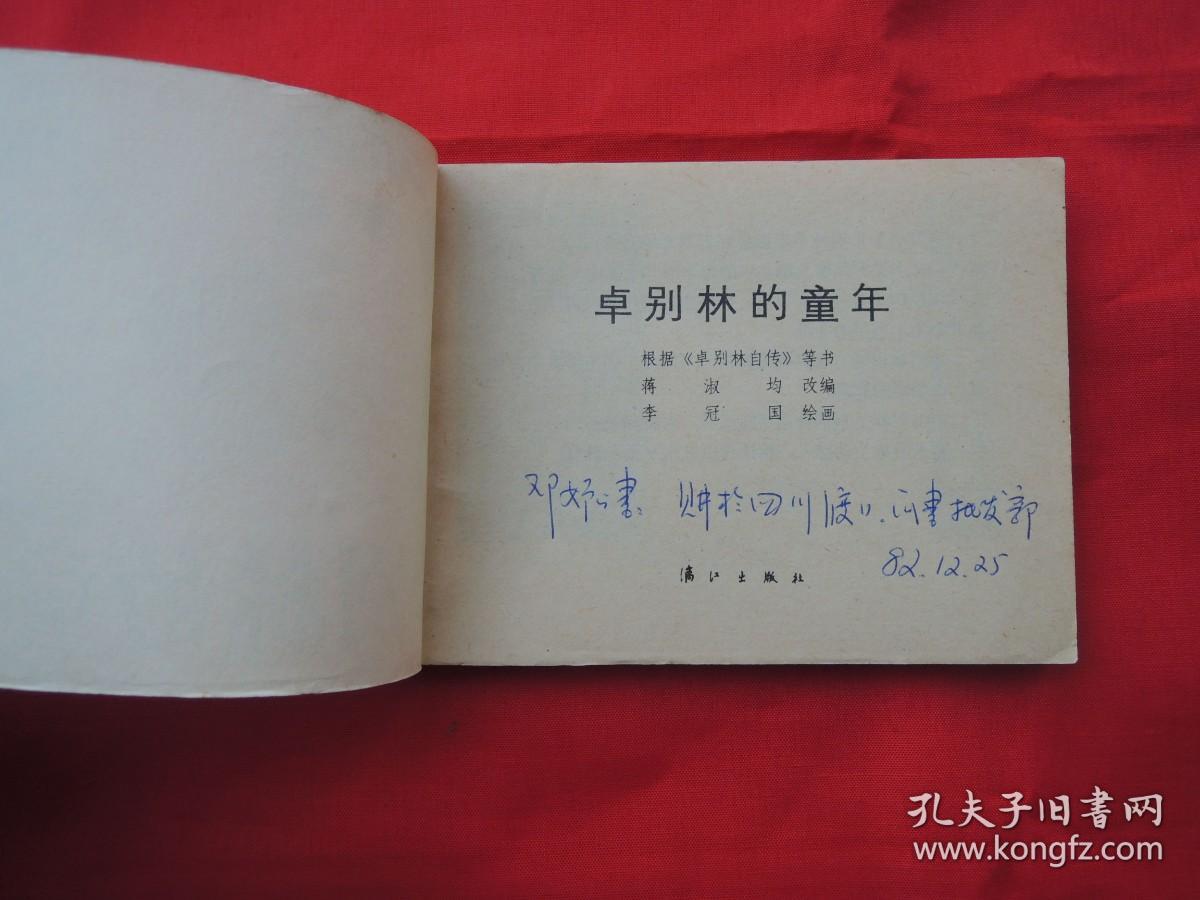 卓别林的童年
根据《卓别林自传》等书
蒋淑均 改编
李冠国 绘画
邓 书: 购于四川渡口. 书批发部
82.12.25
漓江出版社
孔夫子旧书网
www.kongfz.com